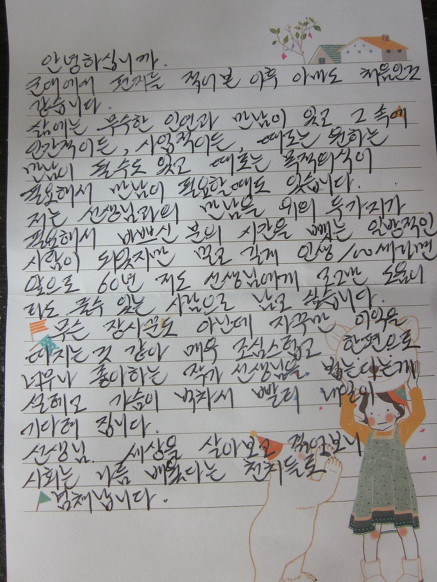 안녕하십니까.
군대에서 편지를 적어본 이후 아마도 처음인것
같습니다.
삶에는 무수한 인연과 만남이 있고 그 속에
인간적이든, 사업적이든, 때로는 원하는
만남이 될수도 있고 때로는 목적의식이
필요해서 만남이 필요할때도 있습니다.
저는 선생님과의 만남을 위의 두가지가
필요해서 바쁘신 분의 시간을 빼는 일반적인
사람이 되었지만 멀고 길게 인생 100세라면
앞으로 60년 저도 선생님에게 조그만 도움이
라도 줄수 있는 사람으로 남고 싶습니다.
무슨 장사꾼도 아닌데 자꾸만 이익을
따지는 것 같아 매우 조심스럽고 한편으로
너무나 좋아하는 작가 선생님을 뵙는다는게
설레고 가슴이 벅차서 빨리 내일이
기다려 집니다.
선생님. 세상을 살아보고 겪어보니
사회는 나름 배웠다는 천치들로
넘쳐납니다.